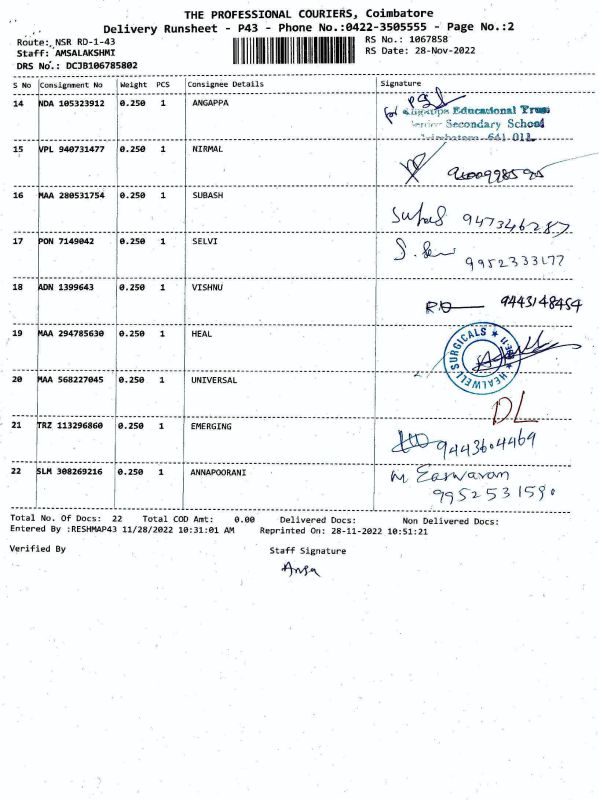 THE PROFESSIONAL COURIERS, Coimbatore
Delivery Runsheet - P43 - Phone No.:0422-3505555 - Page No.:2
Route: NSR RD-1-43 RS No.: 1067858
Staff: AMSALAKSHMI RS Date: 28-Nov-2022
DRS No.: DCJB106785802
S No Consignment No Weight PCS Consignee Details Signature
14 NDA 105323912 0.250 1 ANGAPPA
for Angappa Educational Trust
Senior Secondary School
Coimbatore 641 011
15 VPL 940731477 0.250 1 NIRMAL
16 MAA 280531754 0.250 1 SUBASH
Subas 947346287
17 PON 7149042 0.250 1 SELVI
9952333177
18 ADN 1399643 0.250 1 VISHNU
9443148454
19 MAA 294785630 0.250 1 HEAL
HEALWELL SURGICALS
20 MAA 568227045 0.250 1 UNIVERSAL
DL
21 TRZ 113296860 0.250 1 EMERGING
9443604469
22 SLM 308269216 0.250 1 ANNAPOORANI
M Easwaran
9952531590
Total No. Of Docs: 22 Total COD Amt: 0.00 Delivered Docs: Non Delivered Docs:
Entered By :RESHMAP43 11/28/2022 10:31:01 AM Reprinted On: 28-11-2022 10:51:21
Verified By Staff Signature
Amsa